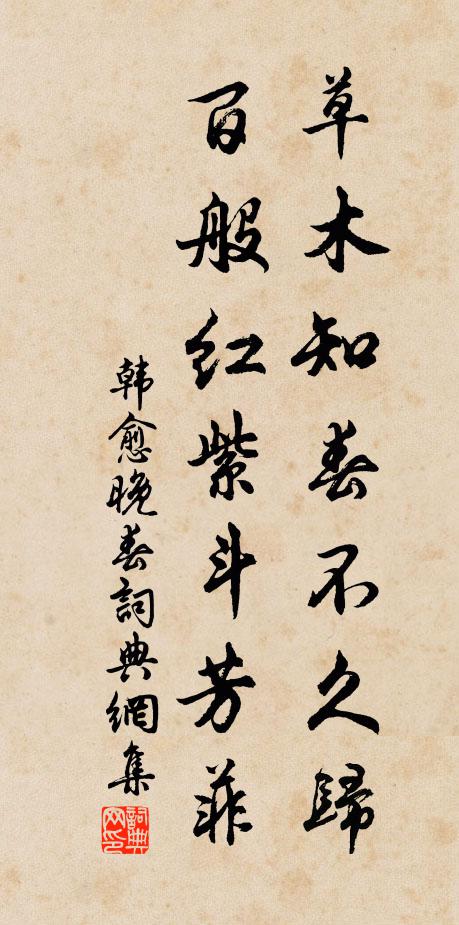 草木知春不久歸
百般红紫斗芳菲
韩愈晚春詞典網集
詞典网印